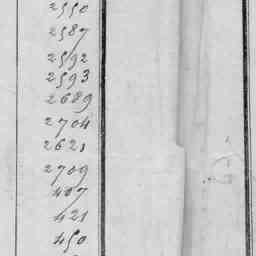 2550
2587
2592
2593
2689
2704
2621
2709
407
421
450